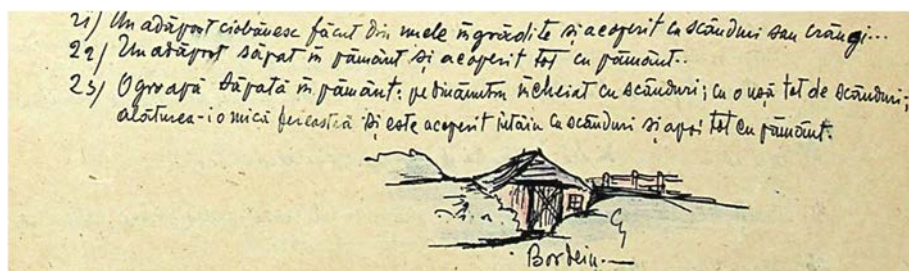 21) Un adăpost ciobănesc făcut din nuele îngrădite și acoperit cu scânduri sau crăngi...
22) Un adăpost săpat în pământ și acoperit tot cu pământ..
23) O groapă săpată în pământ: pe dinăuntru încheiat cu scânduri; cu o ușă tot de scânduri;
alăturea-i o mică fereastră și este acoperit întăiu cu scânduri și apoi tot cu pământ.
Bordeiu.—